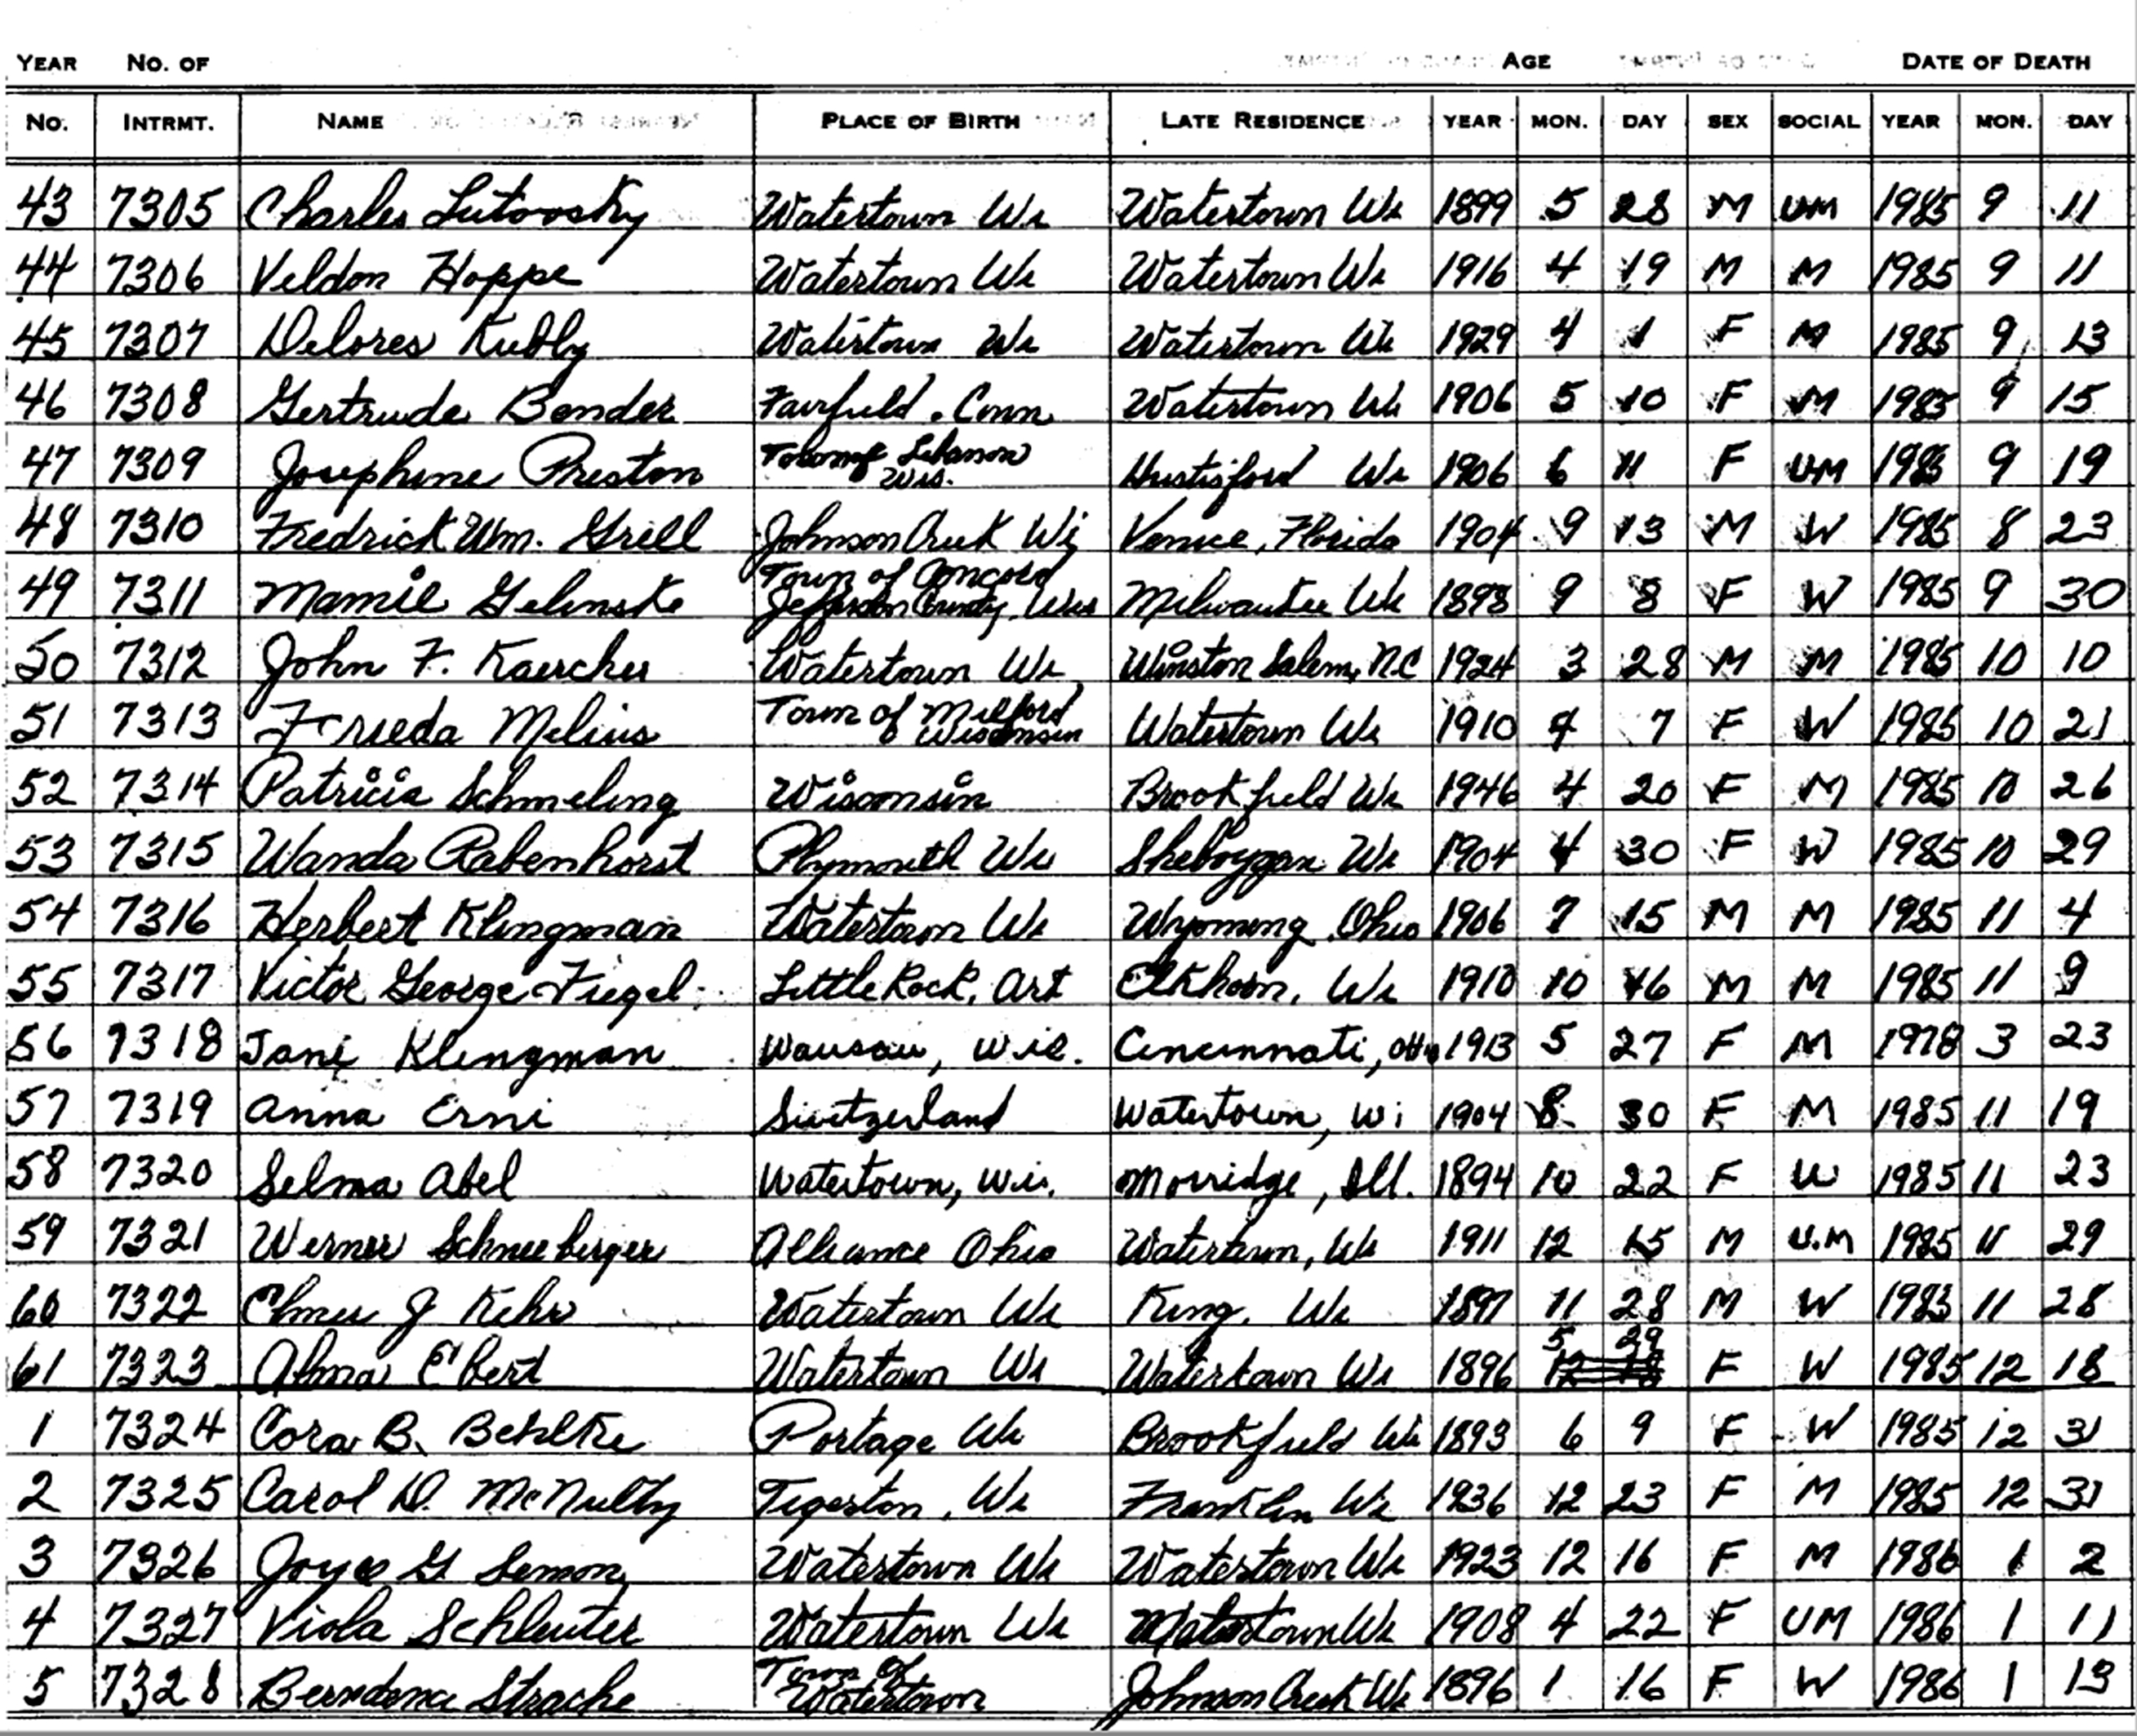 YEAR NO. OF AGE DATE OF DEATH
NO. INTRMT. NAME PLACE OF BIRTH LATE RESIDENCE YEAR MON. DAY SEX SOCIAL YEAR MON. DAY
43 7305 Charles Lutovsky Watertown Wi Watertown Wi 1899 5 28 M UM 1985 9 11
44 7306 Veldon Hoppe Watertown Wi Watertown Wi 1916 4 19 M M 1985 9 11
45 7307 Delores Kubly Watertown Wi Watertown Wi 1929 4 1 F M 1985 9 13
46 7308 Gertrude Bender Fairfield, Conn Watertown Wi 1906 5 10 F M 1985 9 15
47 7309 Josephine Preston Town of Lebanon Wis. Hustisford Wi 1906 6 11 F UM 1985 9 19
48 7310 Fredrick Wm. Grell Johnson Creek Wi Venice, Florida 1904 9 13 M W 1985 8 23
49 7311 Mamie Gelinske Town of Concord Jefferson County, Wis Milwaukee Wi 1898 9 8 F W 1985 9 30
50 7312 John F. Kaercher Watertown Wi Winston Salem, NC 1924 3 28 M M 1985 10 10
51 7313 Frieda Melius Town of Milford Wisconsin Watertown Wi 1910 4 7 F W 1985 10 21
52 7314 Patricia Schmeling Wisconsin Brookfield Wi 1946 4 20 F M 1985 10 26
53 7315 Wanda Rabenhorst Plymouth Wi Sheboygan Wi 1904 4 30 F W 1985 10 29
54 7316 Herbert Klingman Watertown Wi Wyoming, Ohio 1906 7 15 M M 1985 11 4
55 7317 Victor George Fiegel Little Rock, Ark Elkhorn, Wi 1910 10 16 M M 1985 11 9
56 7318 Jane Klingman Wausau, Wis. Cincinnati, Ohio 1913 5 27 F M 1978 3 23
57 7319 Anna Erni Switzerland Watertown, Wi 1904 8 30 F M 1985 11 19
58 7320 Selma Abel Watertown, Wis. Morridge, Ill. 1894 10 22 F W 1985 11 23
59 7321 Werner Schneeberger Alliance Ohio Watertown, Wi 1911 12 15 M U.M 1985 11 29
60 7322 Elmer J Kehr Watertown Wi King, Wi 1897 11 28 M W 1985 11 28
61 7323 Alma Ebert Watertown Wi Watertown Wi 1896 5 29 F W 1985 12 18
1 7324 Cora B. Behlke Portage Wi Brookfield Wi 1893 6 9 F W 1985 12 31
2 7325 Carol D. McNulty Tigerton, Wi Franklin Wi 1936 12 23 F M 1985 12 31
3 7326 Joyce G Lemon Watertown Wi Watertown Wi 1923 12 16 F M 1986 1 2
4 7327 Viola Schleuter Watertown Wi Watertown Wi 1908 4 22 F UM 1986 1 11
5 7328 Strache Town of Watertown Johnson Creek Wi 1896 1 16 F W 1986 1 13